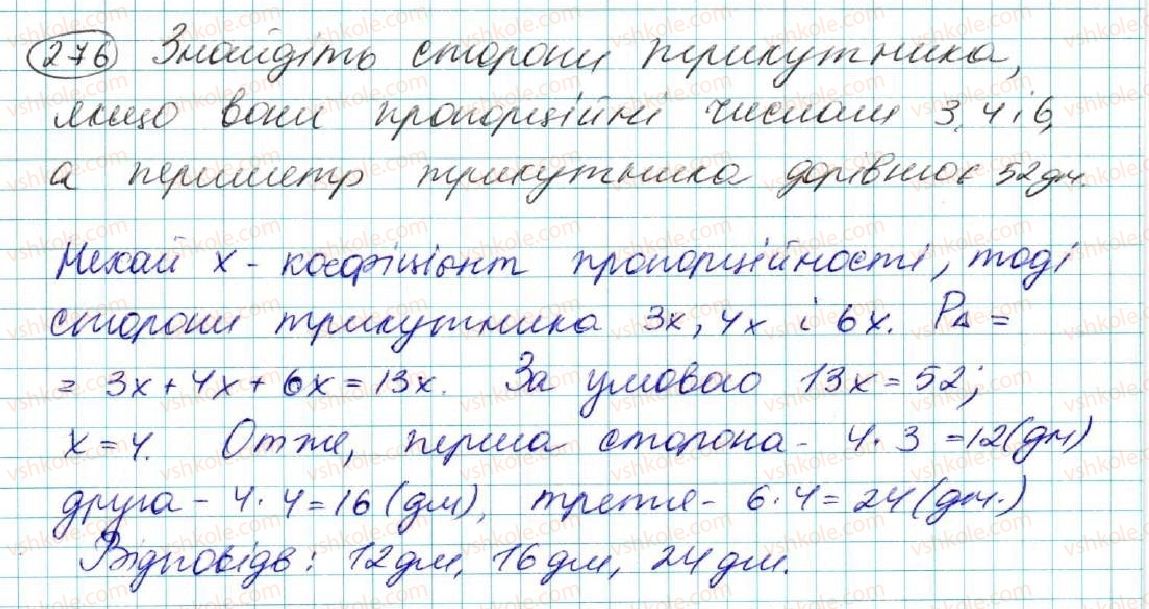 276 Знайдіть сторони трикутника,
якщо вони пропорційні числам 3, 4 і 6,
а периметр трикутника дорівнює 52 дм.
Нехай x - коефіцієнт пропорційності, тоді
сторони трикутника 3x, 4x і 6x. P∆ =
= 3x + 4x + 6x = 13x. За умовою 13x = 52;
x = 4. Отже, перша сторона - 4 · 3 = 12 (дм)
друга - 4 · 4 = 16 (дм), третя - 6 · 4 = 24 (дм.)
Відповідь: 12 дм, 16 дм, 24 дм.